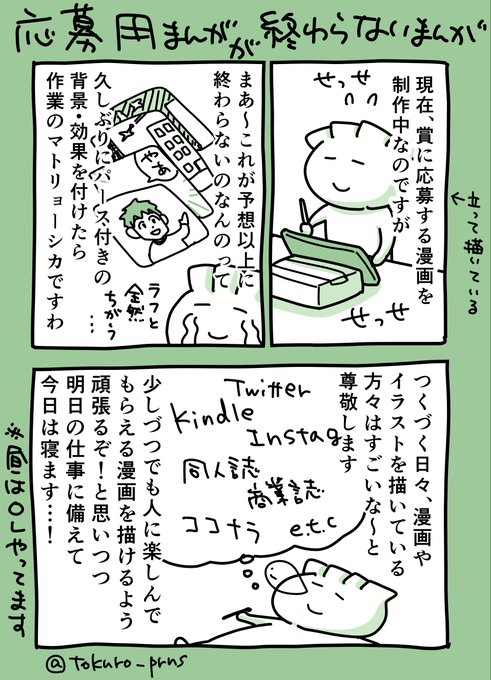 応募用まんがが終わらないまんが
現在、賞に応募する漫画を
制作中なのですが
せっせっ
せっせっ
←立って描いている
まあ〜これが予想以上に
終わらないのなんのって
やあ
久しぶりにパース付きの
背景・効果を付けたら
作業のマトリョーシカですわ
ラフと
全然
ちがう
…
つくづく日々、漫画や
イラストを描いている
方々はすごいな〜と
尊敬します
Twitter
Kindle
Instag
同人誌
商業誌
ココナラ
e.t.c
少しづつでも人に楽しんで
もらえる漫画を描けるよう
頑張るぞ!と思いつつ
明日の仕事に備えて
今日は寝ます…!
※昼はOLやってます
@tokuro_prns